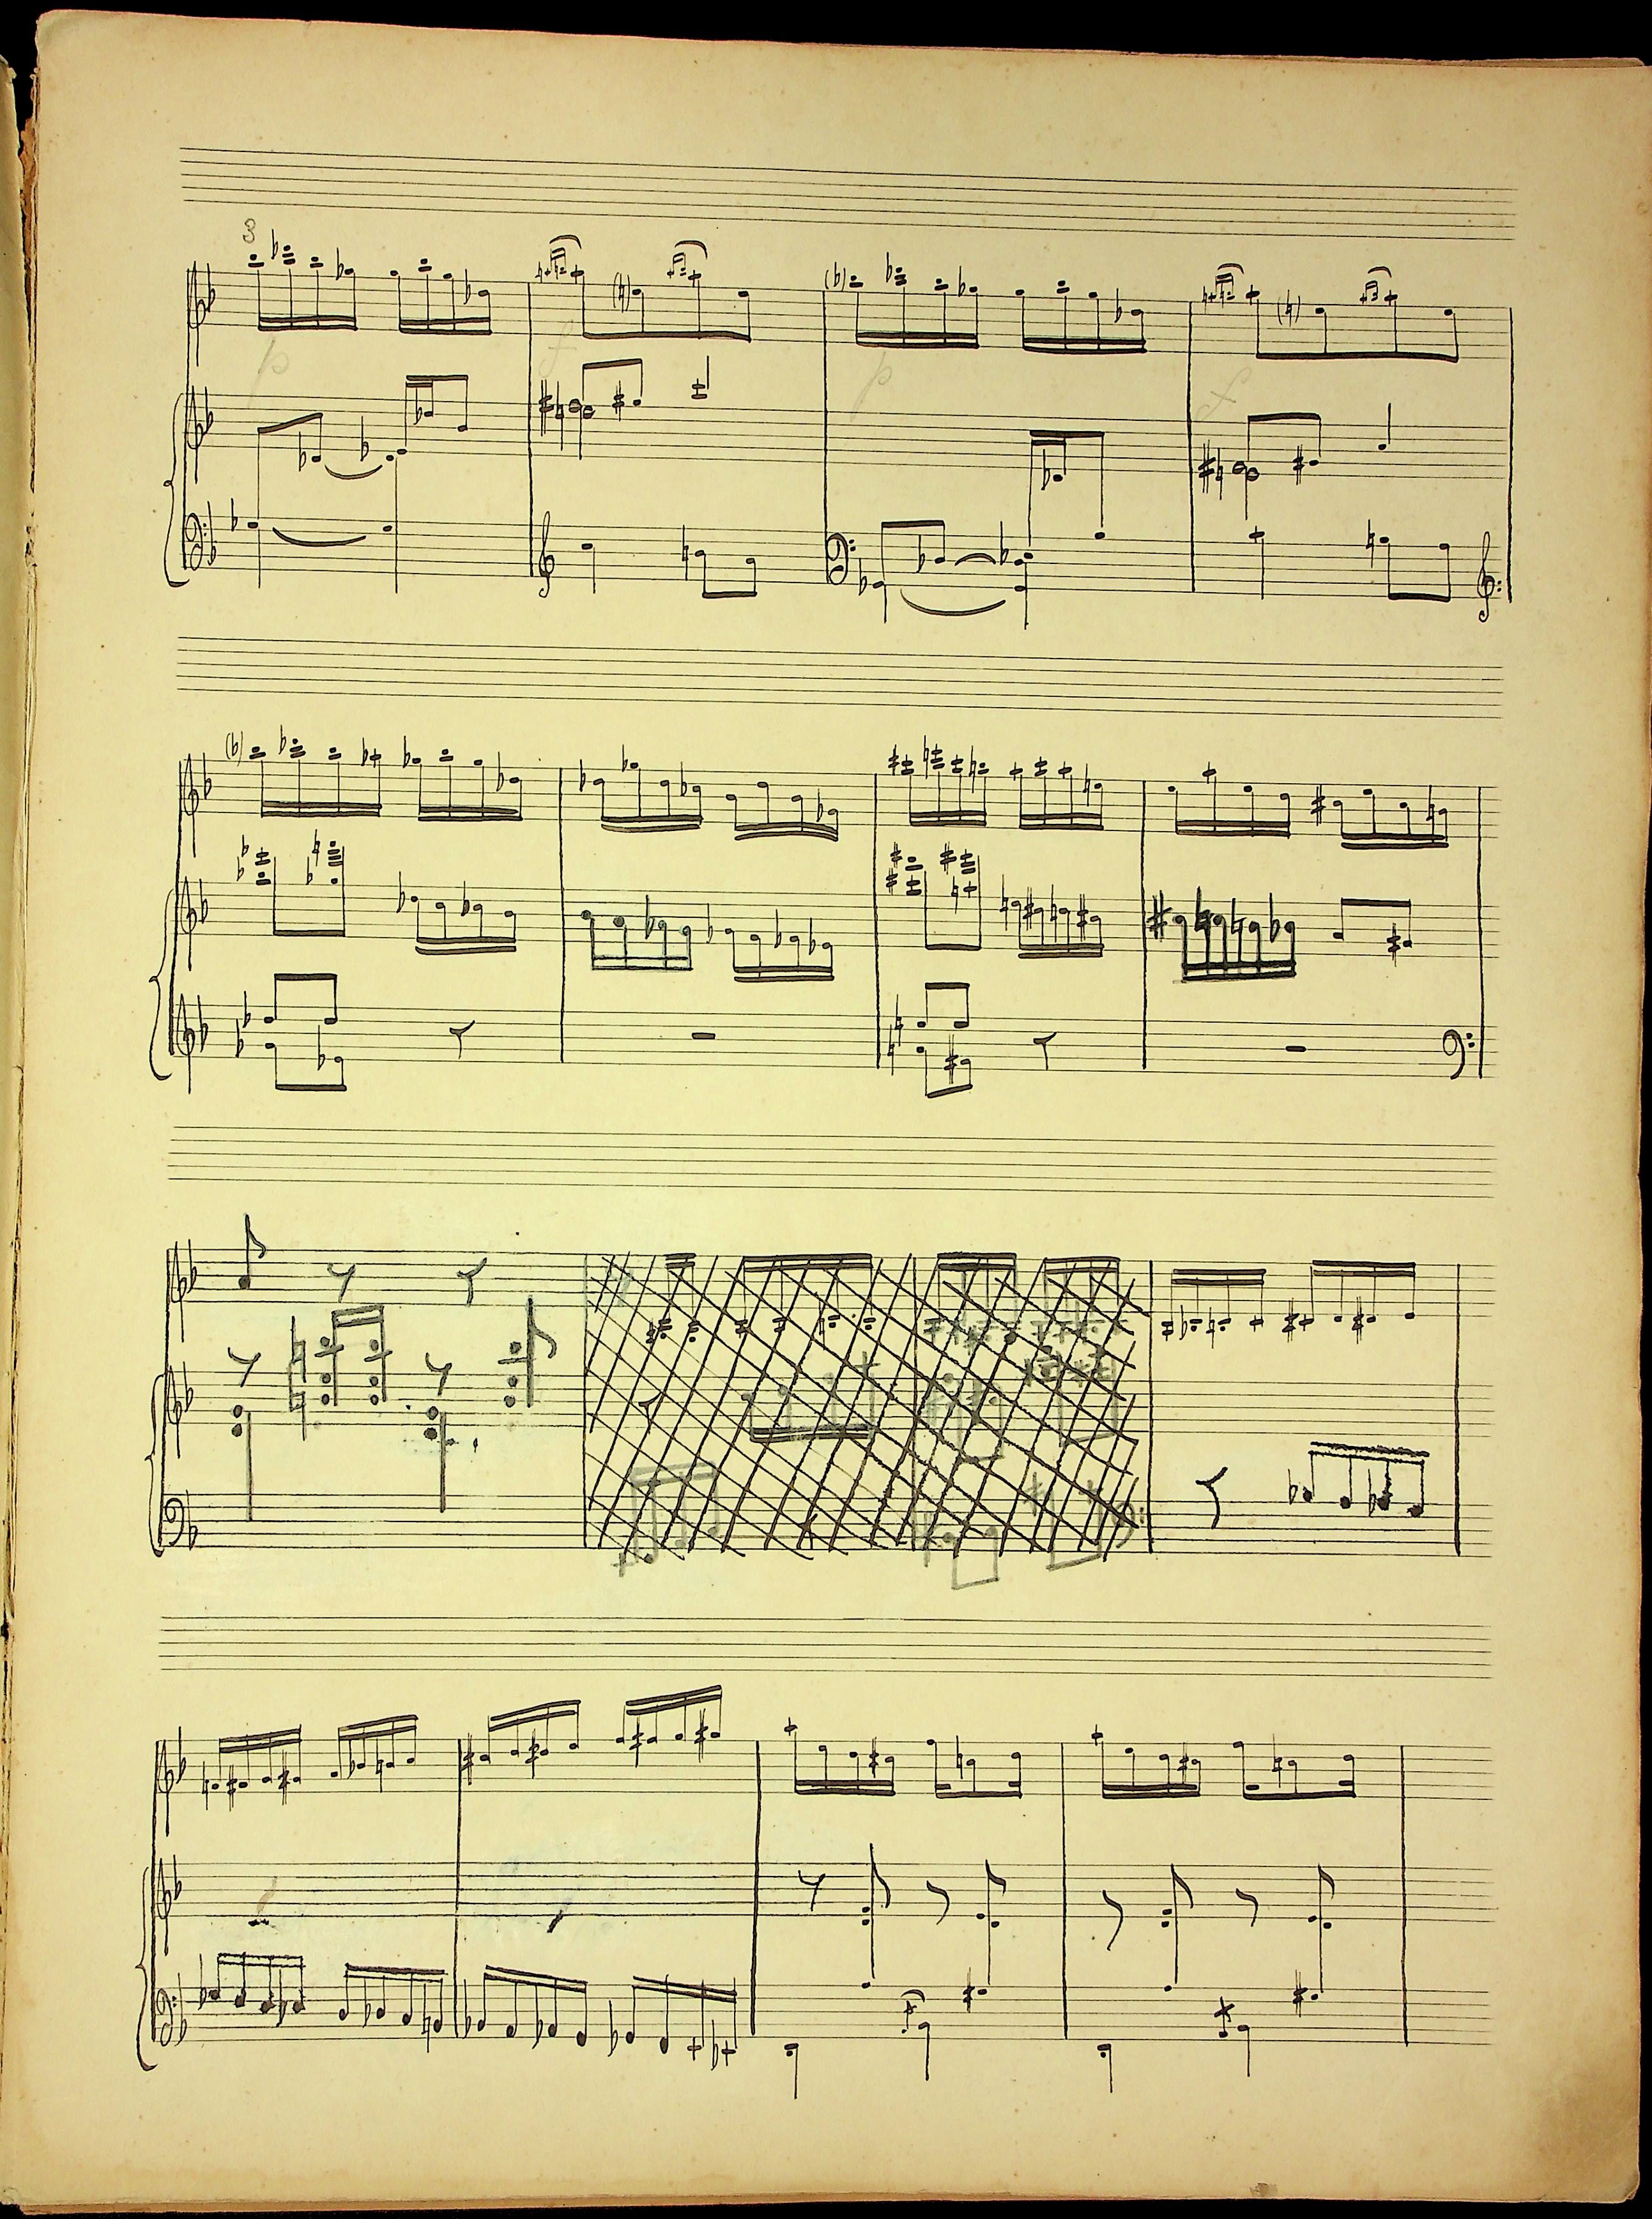 3
p
f
p
f